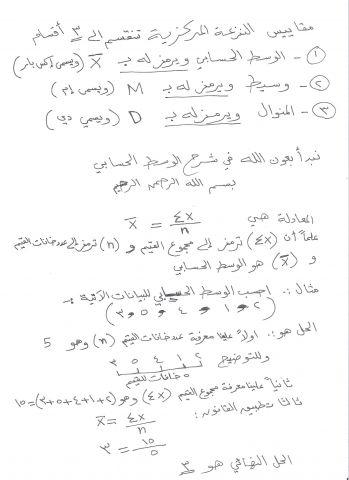 مقاييس النزعة المركزية تنقسم إلى ٣ أقسام
① - الوسط الحسابي ويرمز له بـ X̄ (ويسمى إكس بار)
② - وسيط ويرمز له بـ M (ويسمى إم)
③ - المنوال ويرمز له بـ D (ويسمى دي)
نبدأ بعون الله في شرح الوسط الحسابي
بسم الله الرحمن الرحيم
المعادلة هي X̄ = ΣX / n
علماً أن (ΣX) ترمز إلى مجموع القيم و (n) ترمز إلى عدد خانات القيم
و (X̄) هو الوسط الحسابي
مثال :. احسب الوسط الحسابي للبيانات الآتية :.
(٢ ، ١ ، ٤ ، ٥ ، ٣)
الحل هو :. اولاً علينا معرفة عدد خانات القيم (n) وهو 5
وللتوضيح ٢ ١ ٤ ٥ ٣
٥ خانات للقيم
ثانياً علينا معرفة مجموع القيم (ΣX) وهو (٢+١+٤+٥+٣)=١٥
ثالثاً تطبيق القانون :. X̄ = ΣX / n
٣ = ١٥ / ٥
الحل النهائي هو ٣